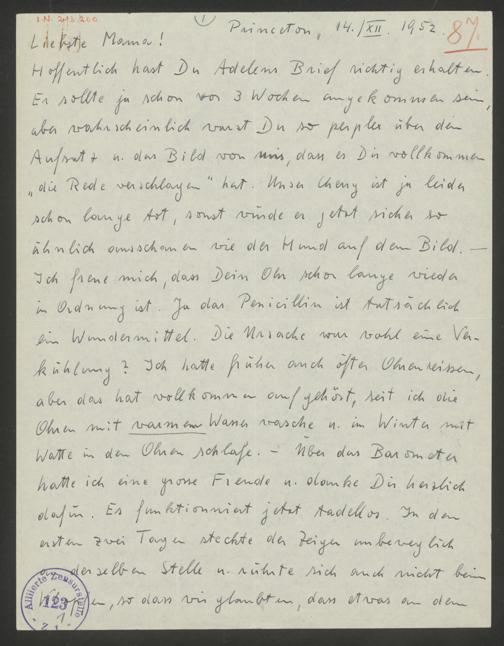 I.N. 213.200
1
Princeton, 14./XII. 1952.
87
Liebste Mama!
Hoffentlich hast Du Adelens Brief richtig erhalten.
Er sollte ja schon vor 3 Wochen angekommen sein,
aber wahrscheinlich warst Du so perplex über den
Aufsatz u. das Bild von uns, dass es Dir vollkommen
„die Rede verschlagen" hat. Unser ist ja leider
schon lange tot, sonst würde er jetzt sicher so
ähnlich ausschauen wie der Hund auf dem Bild. —
Ich freue mich, dass Dein Ohr schon lange wieder
in Ordnung ist. Ja das Penicillin ist tatsächlich
ein Wundermittel. Die Ursache war wohl eine Ver-
kühlung? Ich hatte früher auch öfter Ohrenreissen,
aber das hat vollkommen aufgehört, seit ich die
Ohren mit warmem Wasser wasche u. im Winter mit
Watte in den Ohren schlafe. – Über das Barometer
hatte ich eine grosse Freude u. danke Dir herzlich
dafür. Es funktioniert jetzt tadellos. In den
ersten zwei Tagen steckte der Zeiger unbeweglich
an derselben Stelle u. rührte sich auch nicht beim
Klopfen, so dass wir glaubten, dass etwas an dem
Alliierte Zensurstelle
123